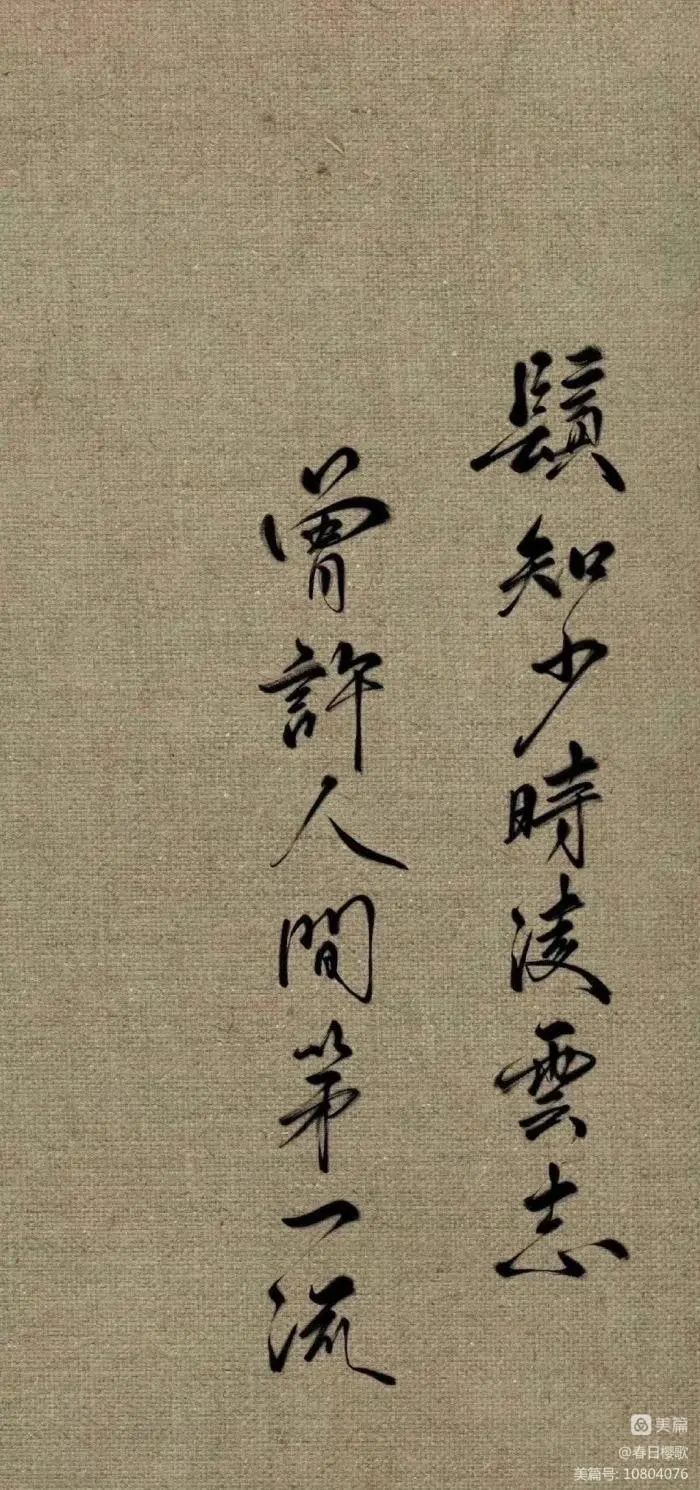 知少時淩雲志
曾許人間第一流
美篇
@春日樱歌
美篇号: 10804076